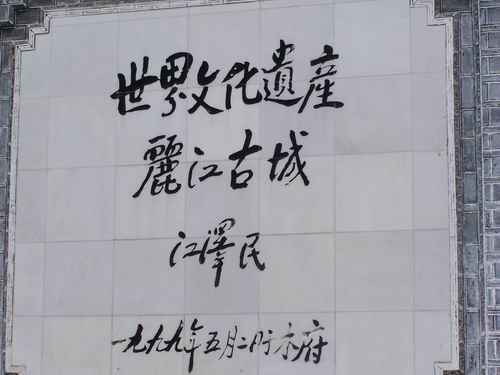 世界文化遺產
麗江古城
江澤民
一九九九年五月二日于木府